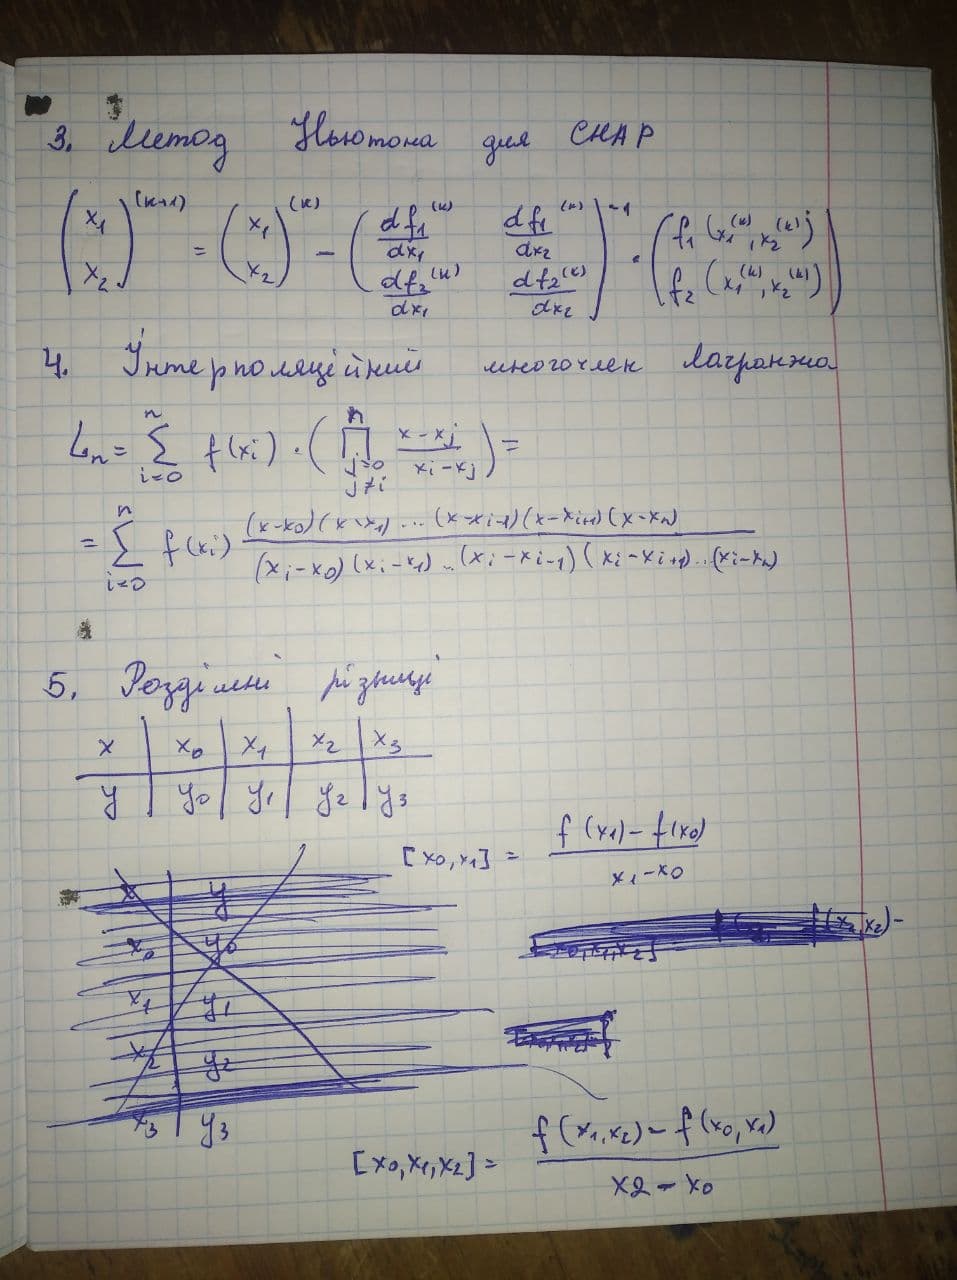 3. Метод Ньютона для СНАР
(x₁ x₂)⁽ᵏ⁺¹⁾ = (x₁ x₂)⁽ᵏ⁾ − (df₁⁽ᵏ⁾/dx₁ df₁⁽ᵏ⁾/dx₂ df₂⁽ᵏ⁾/dx₁ df₂⁽ᵏ⁾/dx₂)⁻¹ · (f₁(x₁⁽ᵏ⁾, x₂⁽ᵏ⁾) f₂(x₁⁽ᵏ⁾, x₂⁽ᵏ⁾))
4. Інтерполяційний многочлен Лагранжа
Lₙ = Σ_{i=0}^{n} f(xᵢ) · (∏_{j=0, j≠i}^{n} (x−xⱼ)/(xᵢ−xⱼ)) =
= Σ_{i=0}^{n} f(xᵢ) (x−x₀)(x−x₁)...(x−xᵢ₋₁)(x−xᵢ₊₁)(x−xₙ) / (xᵢ−x₀)(xᵢ−x₁)...(xᵢ−xᵢ₋₁)(xᵢ−xᵢ₊₁)..(xᵢ−xₙ)
5. Розділені різниці
x x₀ x₁ x₂ x₃
y y₀ y₁ y₂ y₃
[x₀,x₁] = (f(x₁)−f(x₀)) / (x₁−x₀)
x y
x₀ y₀
x₁ y₁
x₂ y₂
x₃ y₃
[x₀,x₁,x₂] = (f(x₁,x₂)−f(x₀,x₁)) / (x2−x₀)